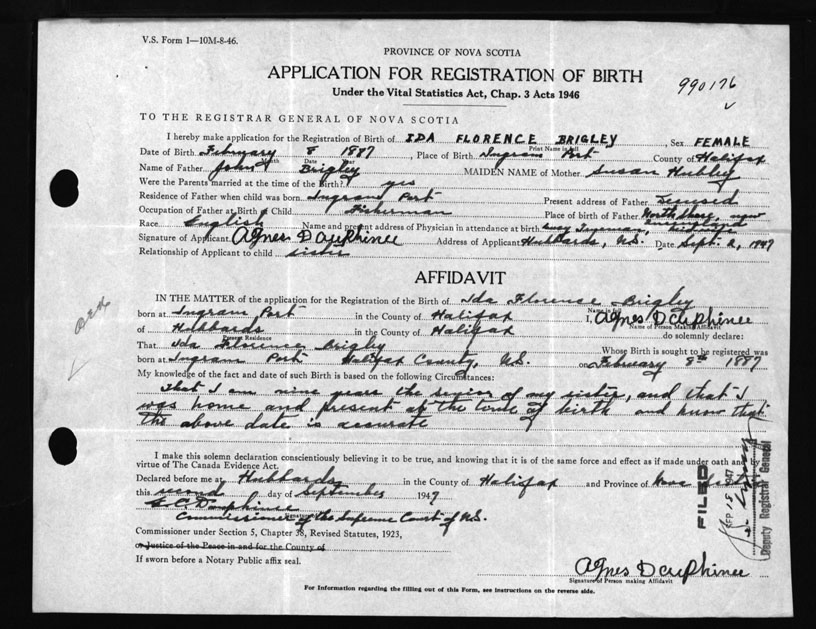 V.S. Form 1—10M-8-46.
PROVINCE OF NOVA SCOTIA
APPLICATION FOR REGISTRATION OF BIRTH
Under the Vital Statistics Act, Chap. 3 Acts 1946
990176
TO THE REGISTRAR GENERAL OF NOVA SCOTIA
I hereby make application for the Registration of Birth of IDA FLORENCE BRIGLEY, Sex FEMALE
Print Name in full
Date of Birth February 8 1887, Place of Birth Ingram Port County of Halifax
Month Date Year
Name of Father John Brigley MAIDEN NAME of Mother Susan Hubley
Were the Parents married at the time of the Birth? yes
Residence of Father when child was born Ingram Port Present address of Father
Occupation of Father at Birth of Child Fisherman Place of birth of Father North Shore, now
Race English Name and present address of Physician in attendance at birth
Signature of Applicant Agnes Dauphinee Address of Applicant Hubbards, N.S. Date Sept. 2, 1947
Relationship of Applicant to child sister
AFFIDAVIT
IN THE MATTER of the application for the Registration of the Birth of Ida Florence Brigley
Name in full
born at Ingram Port in the County of Halifax I, Agnes Dauphinee
Name of Person Making Affidavit
of Hubbards in the County of Halifax do solemnly declare:
Present Residence
That Ida Florence Brigley Whose Birth is sought to be registered was
born at Ingram Port Halifax County, N.S. on February 8th 1887
My knowledge of the fact and date of such Birth is based on the following Circumstances:
That I am nine years the senior of my sister, and that I
was home and present at the time of birth and know that
the above date is accurate
I make this solemn declaration conscientiously believing it to be true, and knowing that it is of the same force and effect as if made under oath and by
virtue of The Canada Evidence Act.
Declared before me at Hubbards in the County of Halifax and Province of Nova Scotia
this second day of September 1947
G. C. Dauphinee
Commissioner of the Supreme Court of N.S.
Commissioner under Section 5, Chapter 38, Revised Statutes, 1923,
or Justice of the Peace in and for the County of
If sworn before a Notary Public affix seal.
Agnes Dauphinee
Signature of Person making Affidavit
For Information regarding the filling out of this Form, see instructions on the reverse side.
FILED
SEP 5 1947
Deputy Registrar General